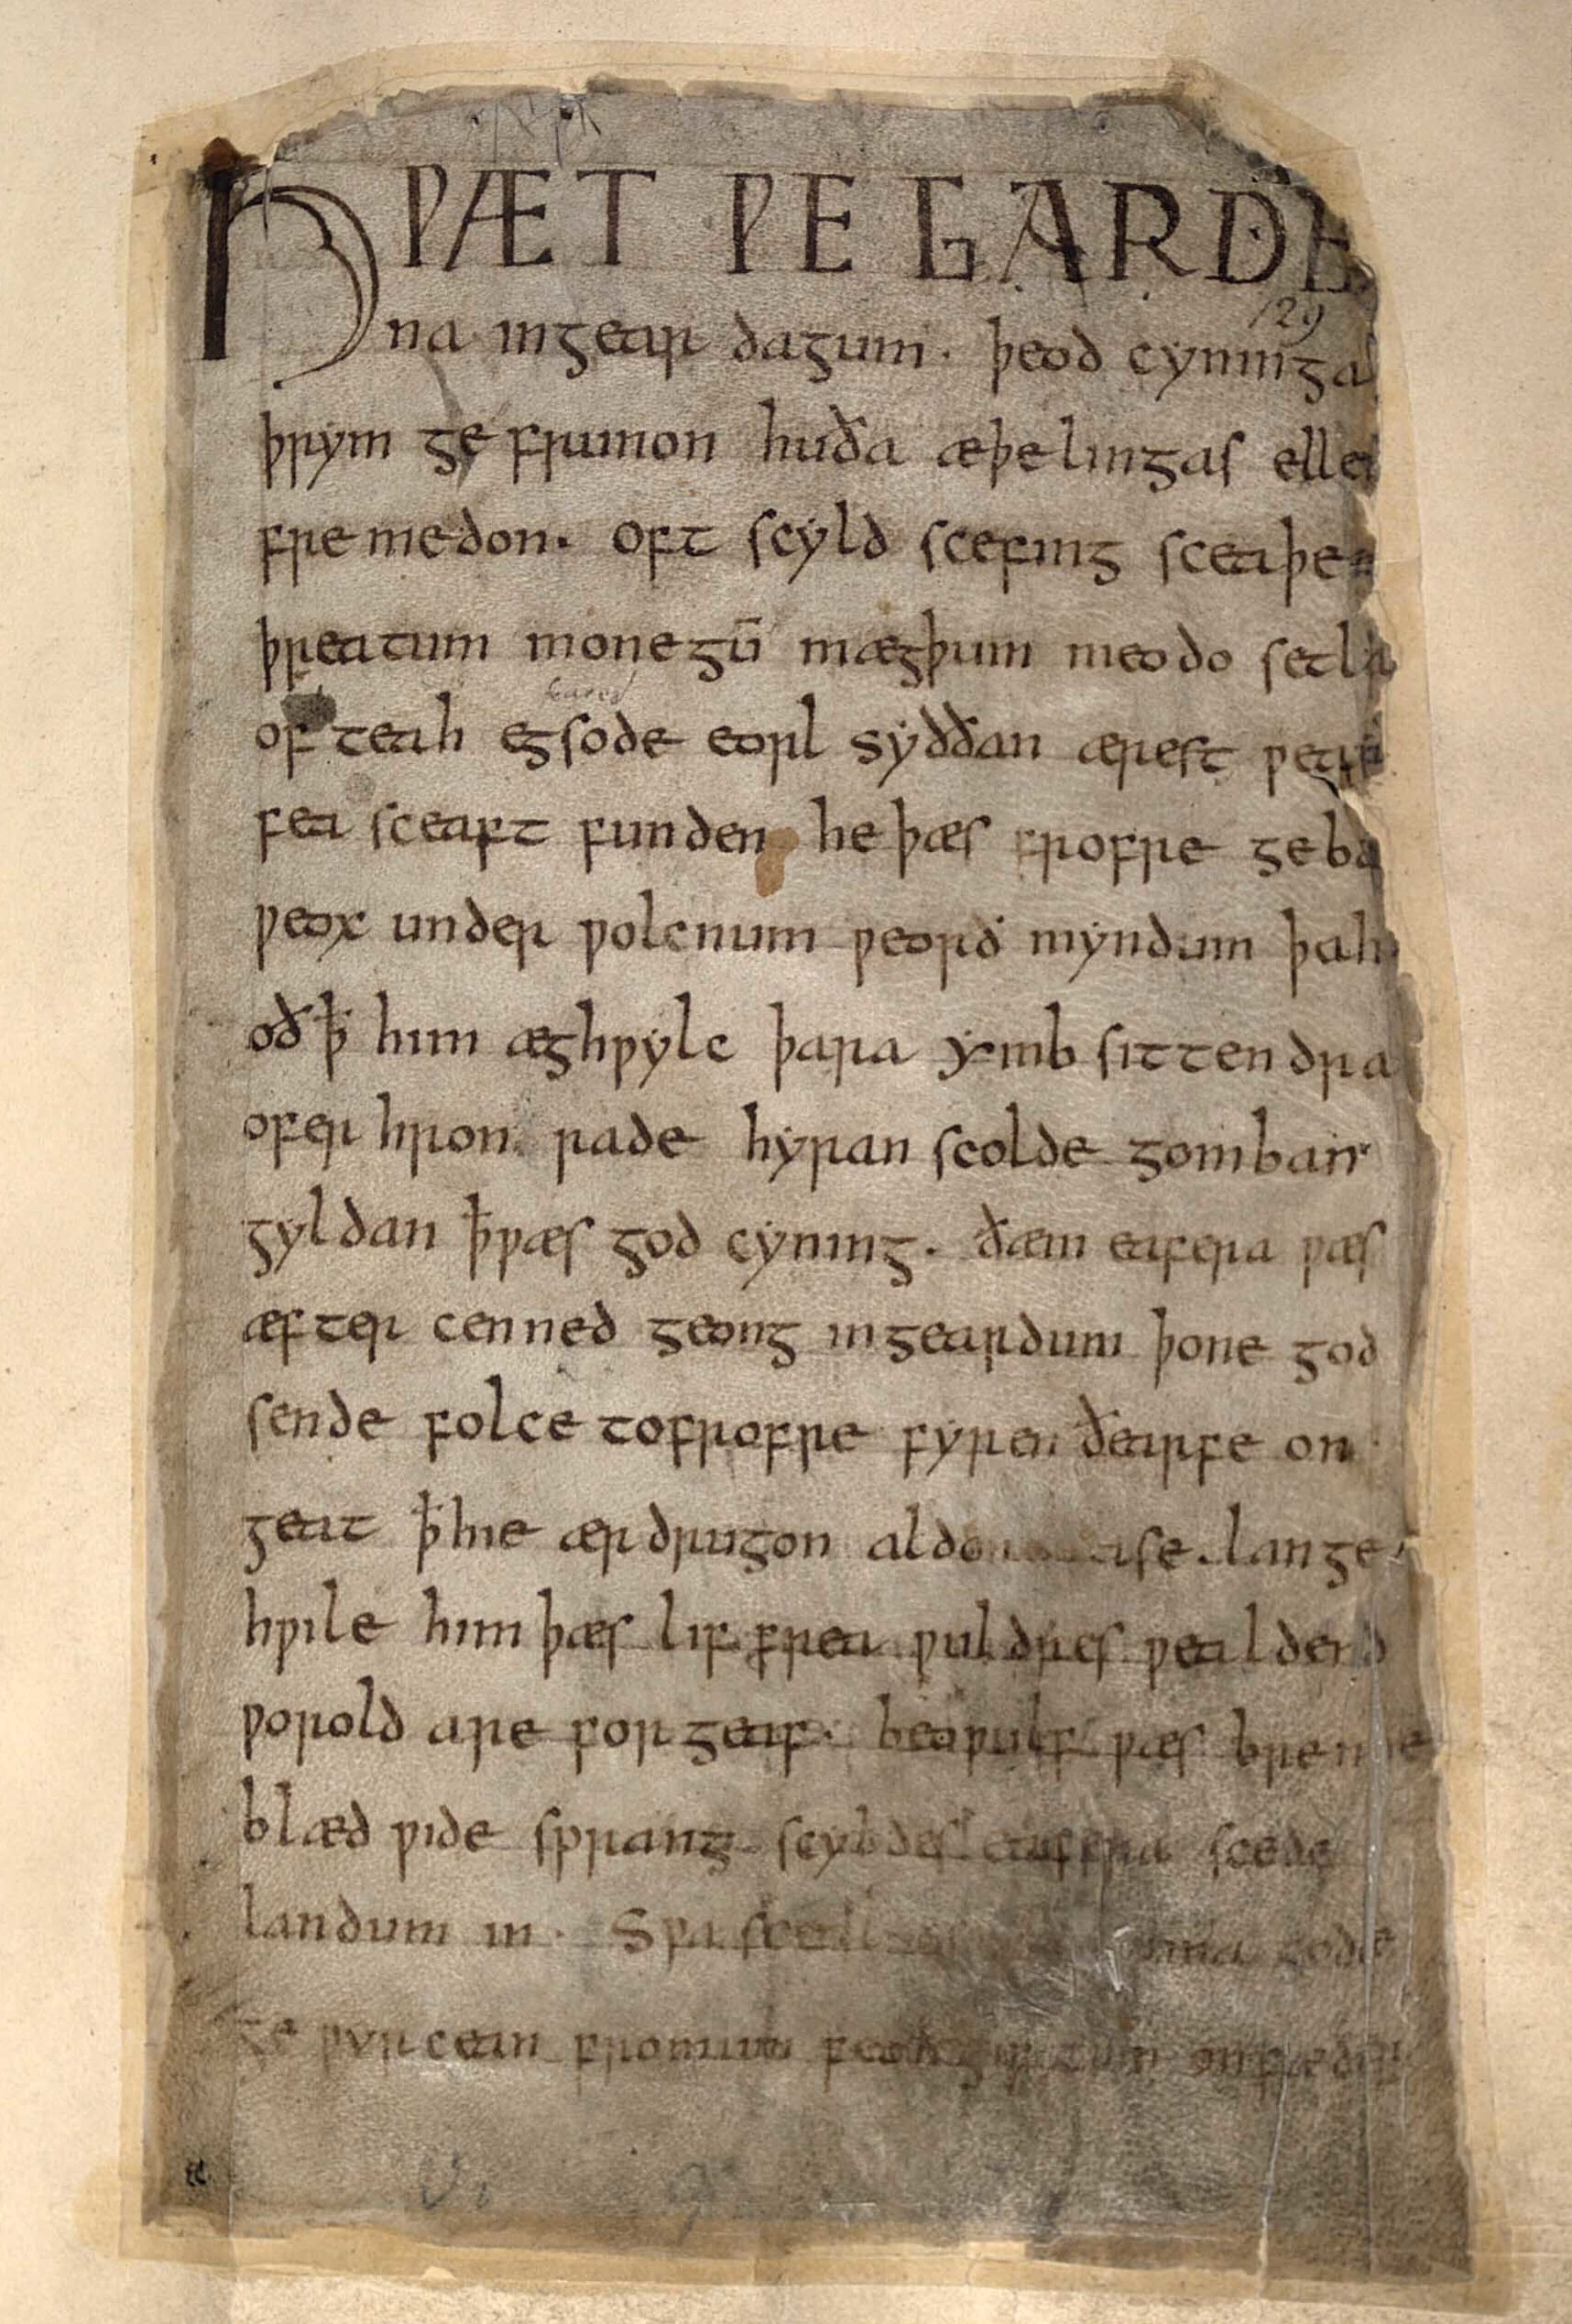 HǷÆT ǷE GARDE
129
na ingear dagum. þeod cyninga
þrym ge frunon huða æþelingas elle
fremedon. oft scyld scefing sceaþe
þreatum monegū mægþum meodo setla
of teah egsode eorl syððan ærest ƿear
fea sceaft funden he þæs frofre geba
ƿeox under ƿolcnum ƿeorð myndum þah
oðꝥ him æghƿylc þara ymb sittendra
ofer hron rade hyran scolde gomban
gyldan ꝥƿæs god cyning. ðæm eafera ƿæs
æfter cenned geong ingeardum þone god
sende folce tofrofre fyren ðearfe on
geat ꝥhie ærdrugon lange
hƿile him þæs lif frea ƿuldres ƿealdend
ƿorold are for geaf. beoƿulf ƿæs breme
blæd ƿide sprang scyldes eafera scede
landum in. Sƿa gode
ge ƿyrcean fromum feoh giftum